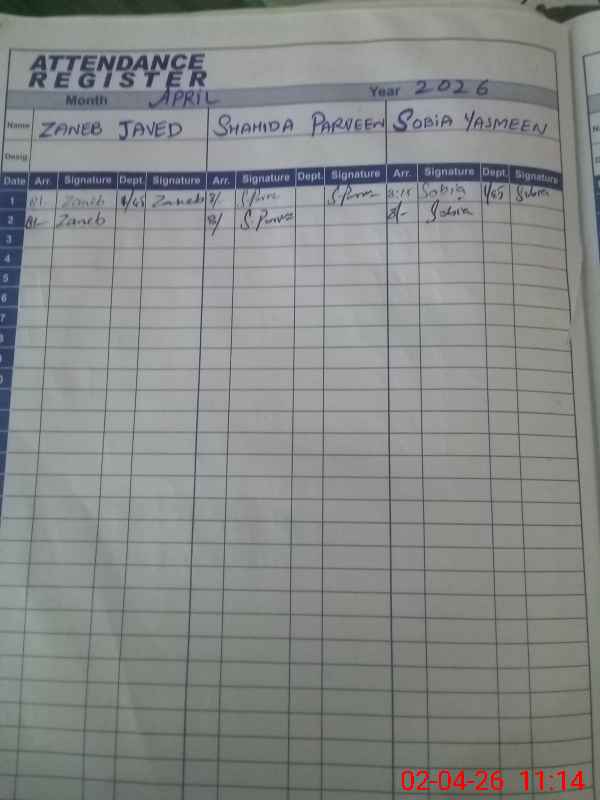 ATTENDANCE
REGISTER
Month APRIL Year 2026
Name ZANEB JAVED SHAHIDA PARVEEN SOBIA YASMEEN
Desig.
Date Arr. Signature Dept. Signature Arr. Signature Dept. Signature Arr. Signature Dept. Signature
1 8/- Zaneb 1/45 Zaneb 8/ 8:15 Sobia 1/45 Sobia
2 8/- Zaneb 8/ 8/- Sobia
3
4
5
6
7
02-04-26 11:14